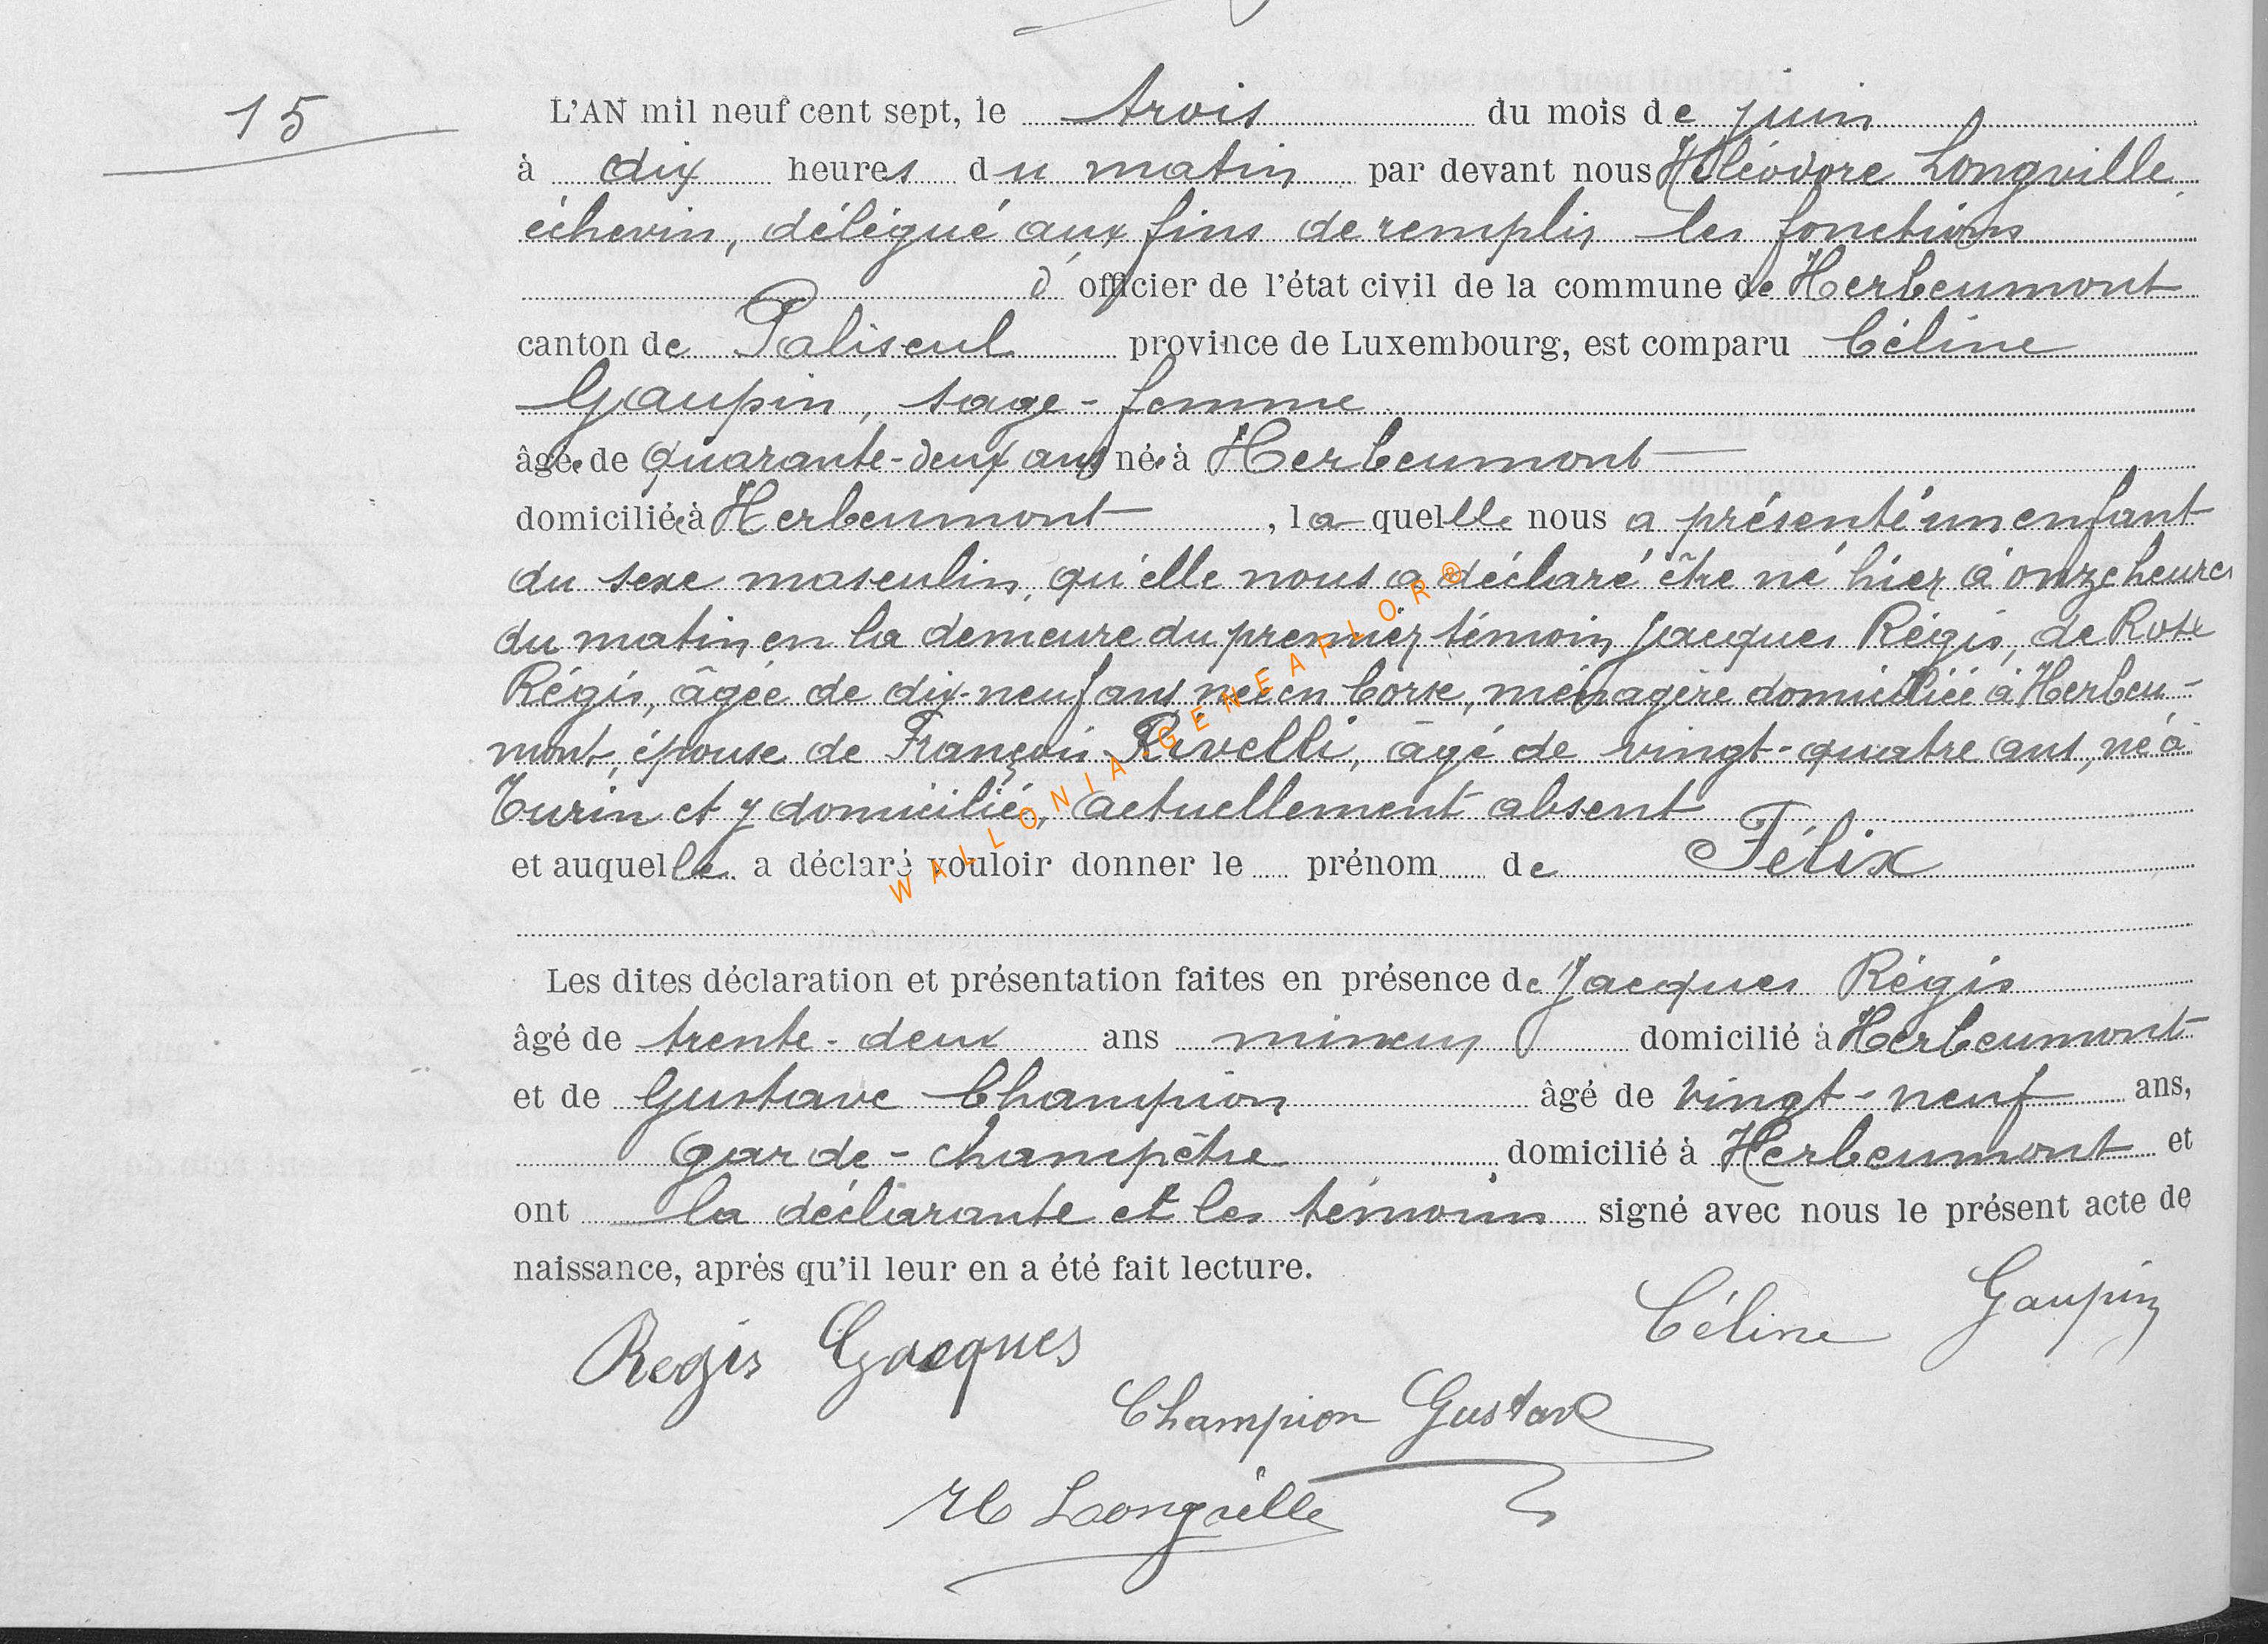 15
L'AN mil neuf cent sept, le trois du mois de juin
à dix heures du matin par devant nous Héléodore Longville
échevin, délégué aux fins de remplir les fonctions
d' officier de l'état civil de la commune de Herbeumont
canton de Paliseul province de Luxembourg, est comparu Céline
Gaupin, sage-femme
âgée de quarante-deux ans née à Herbeumont
domiciliée à Herbeumont, laquelle nous a présenté un enfant
du sexe masculin, qu'elle nous a déclaré être né hier à onze heures
du matin en la demeure du premier témoin Jacques Régis, de Rose
Régis, âgée de dix-neuf ans, née en Corse, ménagère domiciliée à Herbeu-
mont, épouse de François Rivelli, âgé de vingt-quatre ans, né à
Turin et y domicilié, actuellement absent
et auquel le a déclaré vouloir donner le prénom de Félix
Les dites déclaration et présentation faites en présence de Jacques Régis
âgé de trente-deux ans mineur domicilié à Herbeumont
et de Gustave Champion âgé de vingt-neuf ans,
garde-champêtre domicilié à Herbeumont et
ont la déclarante et les témoins signé avec nous le présent acte de
naissance, après qu'il leur en a été fait lecture.
Céline Gaupin
Regis Jacques
Champion Gustave
H Longville
WALLONIA.GENEAFLOR®